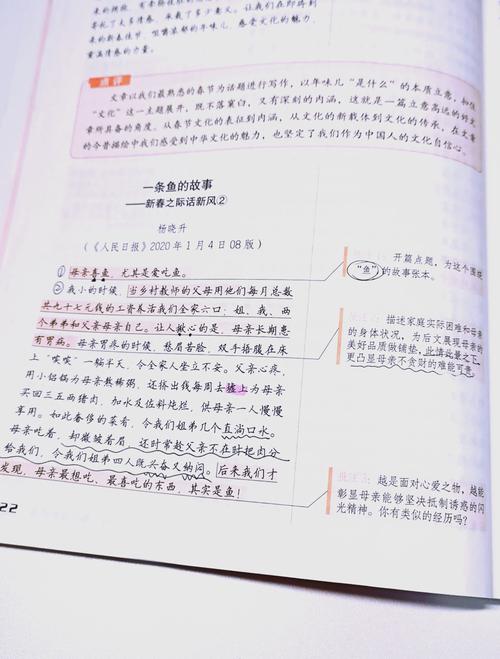 来的新春佳节，咀嚼浓郁的年味儿，感受文化的魅力，
重温传春的力量。
点评
文章以我们最熟悉的春节为话题进行写作，以年味儿“是什么”的本质立意，扣住
“文化”这一主题展开，既不落窠臼，又有深刻的内涵，这就是一篇立意高远的好文
章所具备的角度。从春节文化的表征到内涵，从文化的新载体到文化的传承，在文章
的今昔描绘中我们感受到中华文化的魅力，也坚定了我们作为中国人的文化自信心。
一条鱼的故事
——新春之际话新风②
杨晓升
（《人民日报》2020年1月4日08版）
①母亲喜鱼，尤其是爱吃鱼。
②我小的时候，当乡村教师的父母用他们每月总数
共九十七元钱的工资养活我们全家六口：姐、我、两
个弟弟和父亲母亲自己。让人揪心的是，母亲长期患
有胃病。母亲胃疼的时候，愁眉苦脸，双手捂腹在床
上“唉唉”一躺半天，令全家人坐立不安。父亲心疼，
用小铝锅为母亲熬稀粥，还挤出钱每周去墟上为母亲
买回三五两猪肉，加水及佐料炖烂，供母亲一人慢慢
享用。如此奢侈的菜肴，令我们姐弟几个直淌口水。
母亲吃着，却皱皱着眉，还时常趁父亲不在时把肉分
给我们，令我们姐弟四人既兴奋又纳闷。后来我们才
发现，母亲最想吃、最喜吃的东西，其实是鱼！
开篇点题，为这个围绕
“鱼”的故事张本。
描述家庭实际困难和母亲
的身体状况，为后文展现母亲的
美好品质做铺垫，此情此景之下，
更凸显母亲不贪财的难能可贵。
批注3：越是面对心爱之物，越能
彰显母亲能够坚决抵制诱惑的闪
光精神。你有类似的经历吗？
22